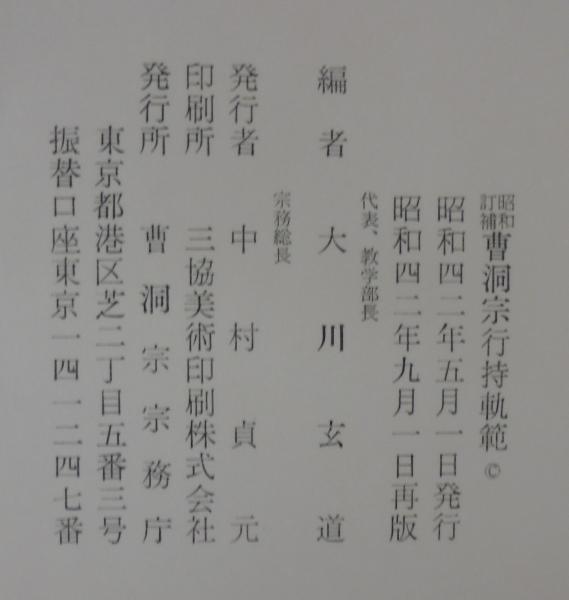 昭和訂補 曹洞宗行持軌範 ©
昭和四二年五月一日発行
昭和四二年九月一日再版
代表、教学部長
編者 大川玄道
宗務総長
発行者 中村貞元
印刷所 三協美術印刷株式会社
発行所 曹洞宗宗務庁
東京都港区芝二丁目五番三号
振替口座東京一四一二四七番